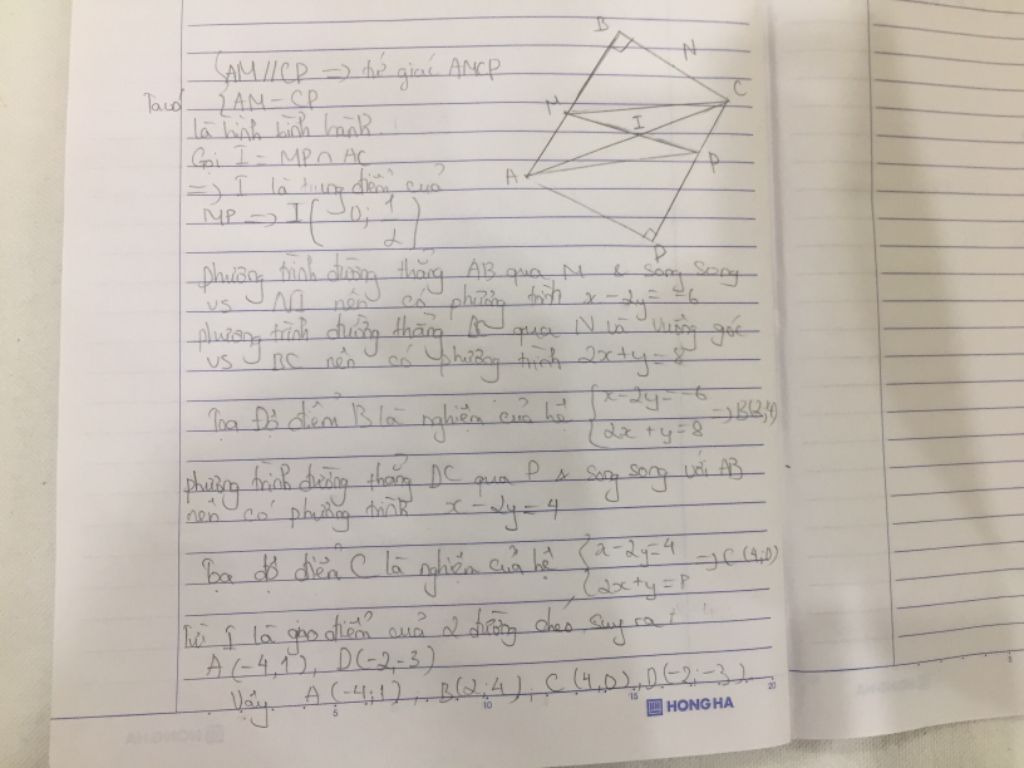 Ta có {AM//CP => tứ giác AMCP
{AM = CP
là hình bình hành.
Gọi I = MP ∩ AC
=> I là trung điểm của
MP => I(0; 1/2)
phương trình đường thẳng AB qua M & song song
vs NI nên có phương trình x - 2y = -6
phương trình đường thẳng BC qua N là vuông góc
vs BC nên có phương trình 2x + y = 8
Tọa Độ điểm B là nghiệm của hệ {x - 2y = -6 => B(2,4)
{2x + y = 8
phương trình đường thẳng DC qua P & song song với AB
nên có phương trình x - 2y = 4
Tọa độ điểm C là nghiệm của hệ {x - 2y = 4 => C(4;0)
{2x + y = 8
Từ I là giao điểm của 2 đường chéo, suy ra
A(-4,1), D(-2,-3)
Vậy A(-4;1), B(2;4), C(4,0), D(-2;-3).
B
N
C
M
I
P
A
D
5
10
15
20
HONG HA